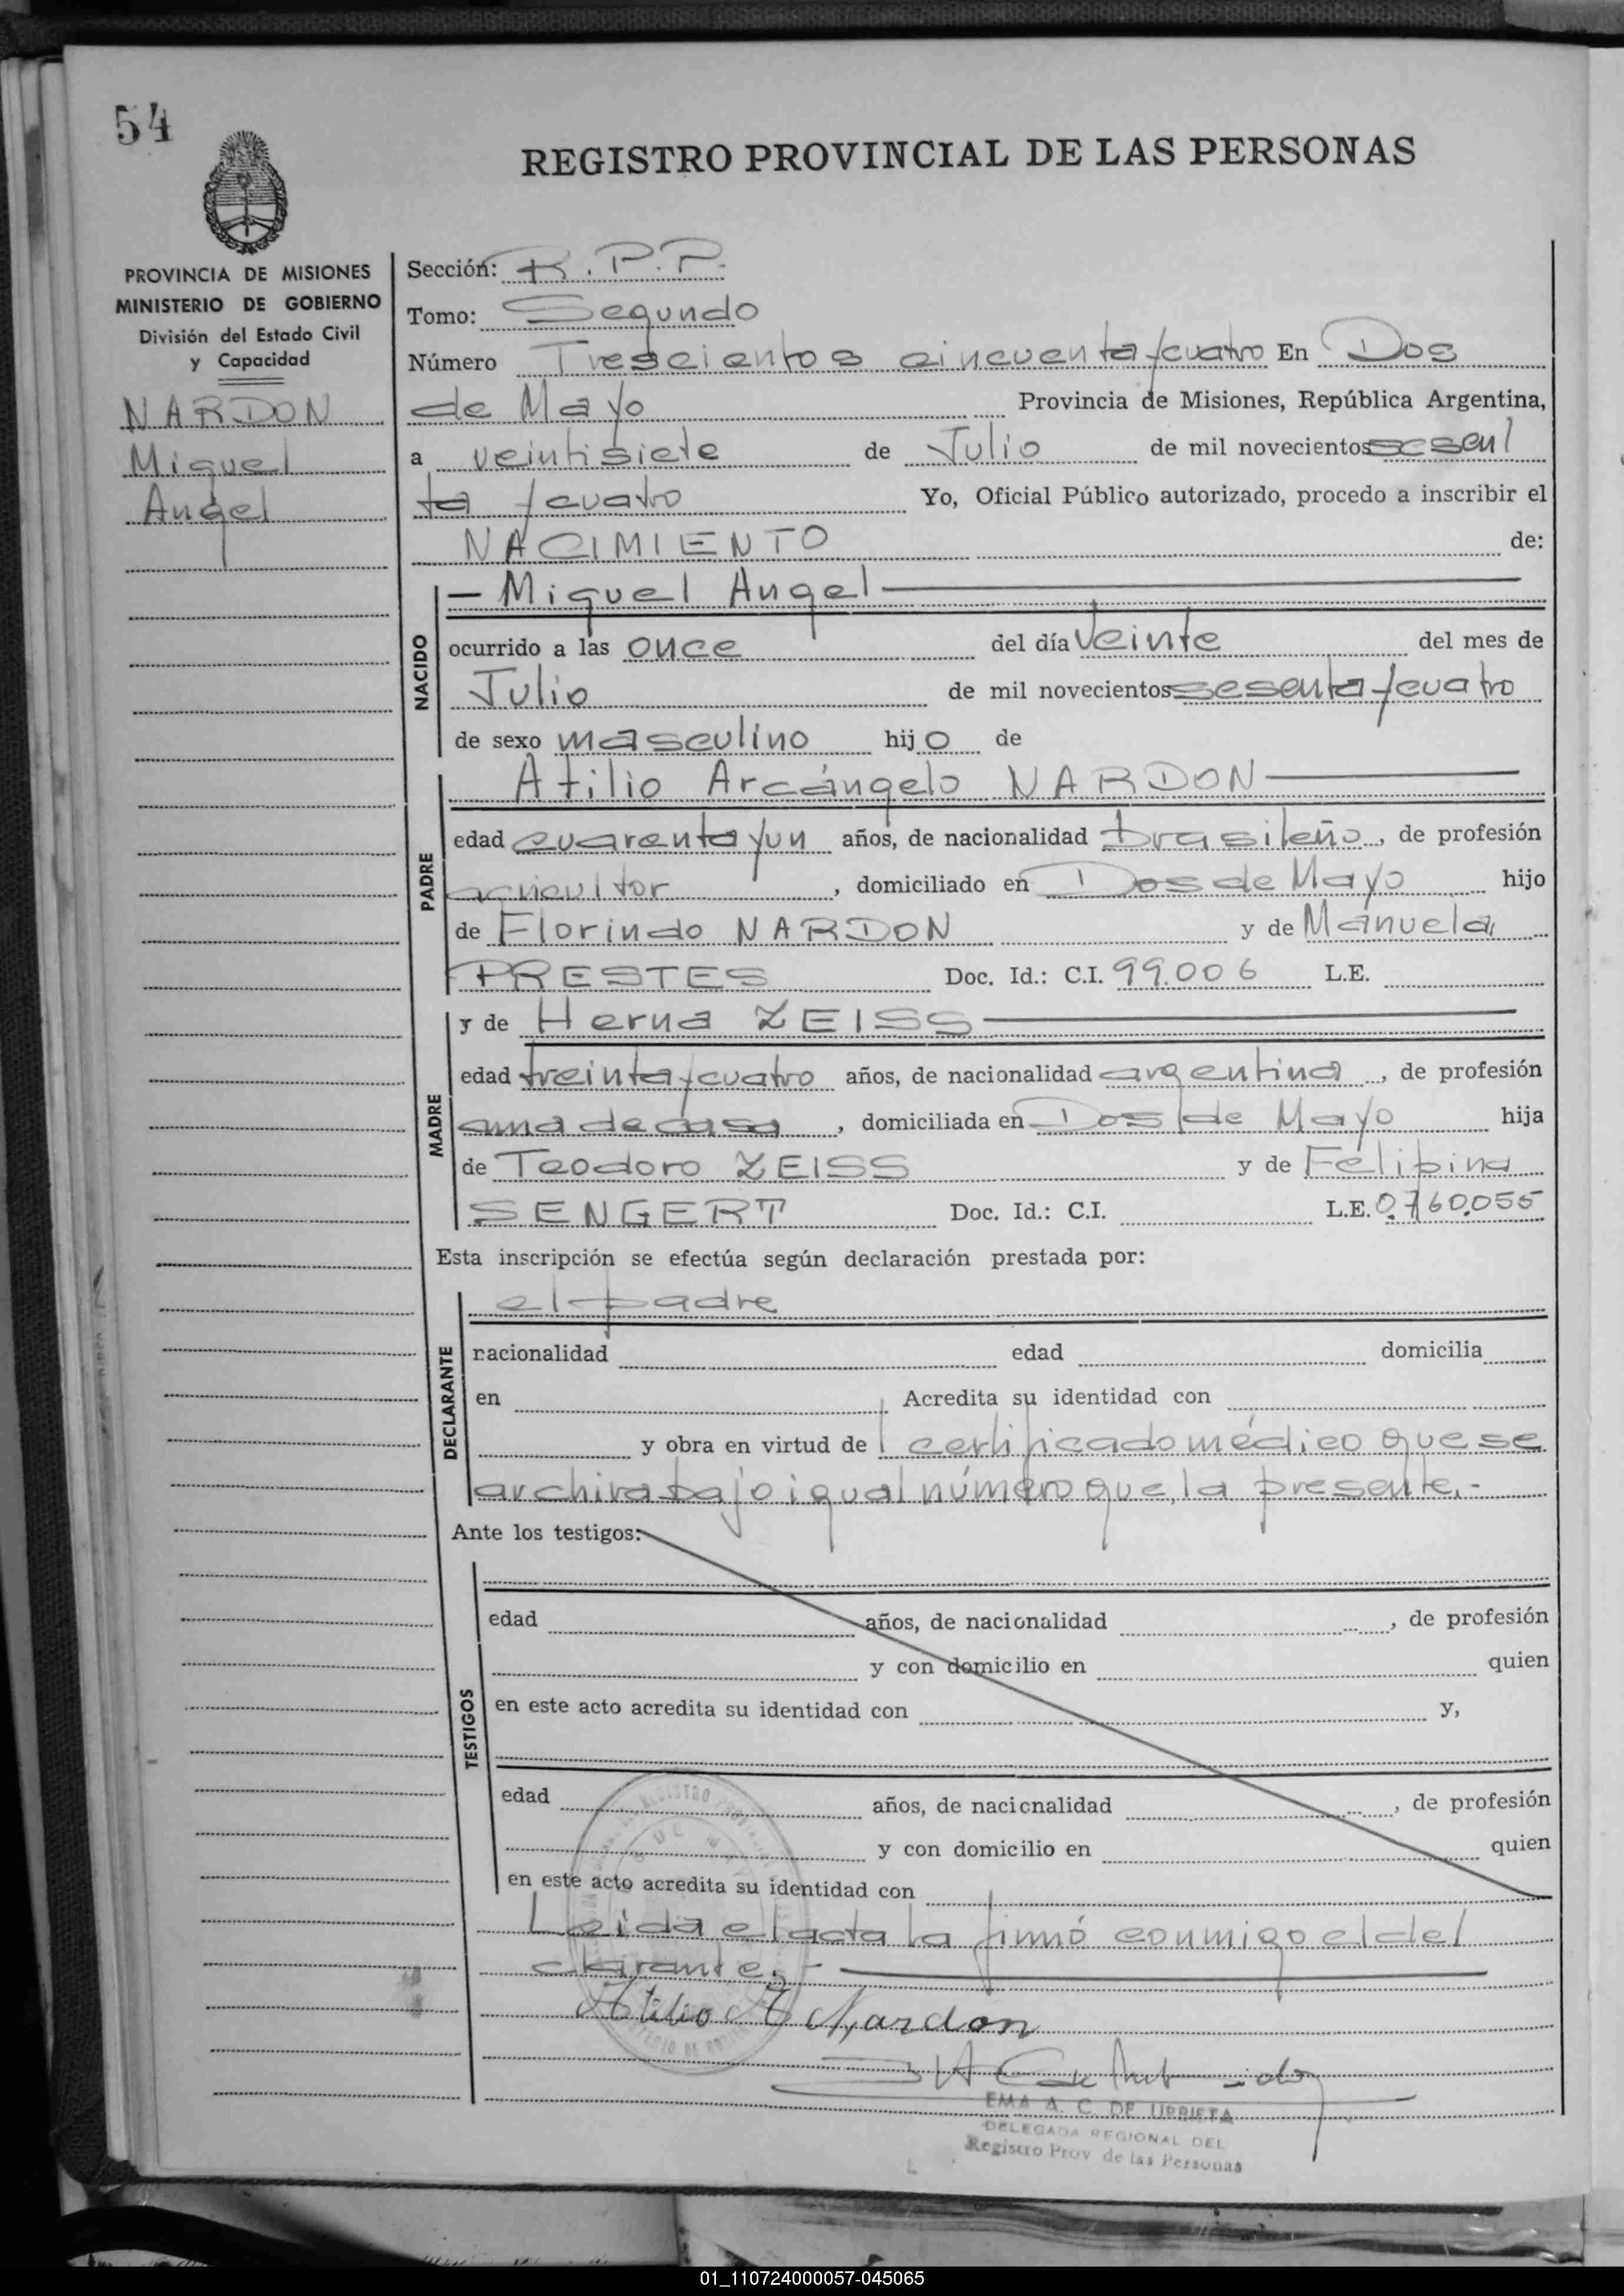 54
REGISTRO PROVINCIAL DE LAS PERSONAS
PROVINCIA DE MISIONES
MINISTERIO DE GOBIERNO
División del Estado Civil
y Capacidad
NARDON
Miguel
Angel
Sección: R.P.P.
Tomo: Segundo
Número Trescientos cincuenta y cuatro En Dos
de Mayo Provincia de Misiones, República Argentina,
a veintisiete de Julio de mil novecientos sesen
ta y cuatro Yo, Oficial Público autorizado, procedo a inscribir el
NACIMIENTO de:
NACIDO
— Miguel Angel —
ocurrido a las once del día veinte del mes de
Julio de mil novecientos sesenta y cuatro
de sexo masculino hijo de
PADRE
Atilio Arcángelo NARDON —
edad cuarenta y un años, de nacionalidad brasileño, de profesión
agricultor, domiciliado en Dos de Mayo hijo
de Florindo NARDON y de Manuela
PRESTES Doc. Id.: C.I. 99.006 L.E.
MADRE
y de Herna ZEISS —
edad treinta y cuatro años, de nacionalidad argentina, de profesión
ama de casa, domiciliada en Dos de Mayo hija
de Teodoro ZEISS y de Felipina
SENGERT Doc. Id.: C.I. L.E. 0.760.055
Esta inscripción se efectúa según declaración prestada por:
DECLARANTE
el padre
nacionalidad edad domicilia
en Acredita su identidad con
y obra en virtud de certificado médico que se
archiva bajo igual número que la presente.-
Ante los testigos:
TESTIGOS
edad años, de nacionalidad , de profesión
y con domicilio en quien
en este acto acredita su identidad con y,
edad años, de nacionalidad , de profesión
y con domicilio en quien
en este acto acredita su identidad con
Leida el acta la firmó conmigo el del
clarante.-
Atilio A Nardon
EMA A. C. DE URRIETA
DELEGADA REGIONAL DEL
Registro Prov de las Personas
01_110724000057-045065